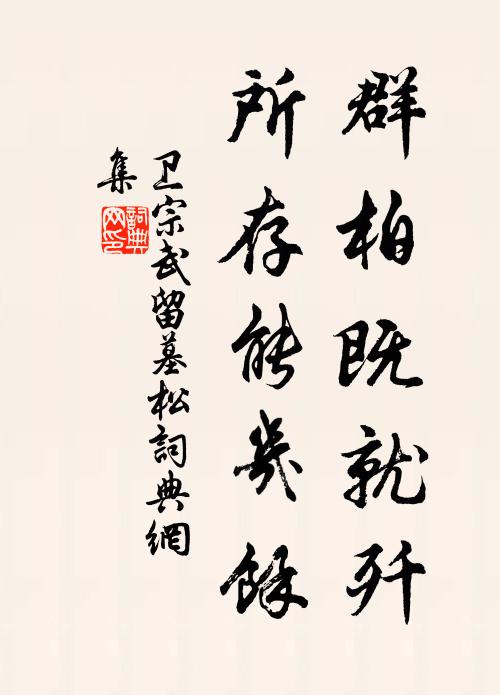 群柏既就歼
所存能幾餘
卫宗武留墓松詞典網
集
詞典
网